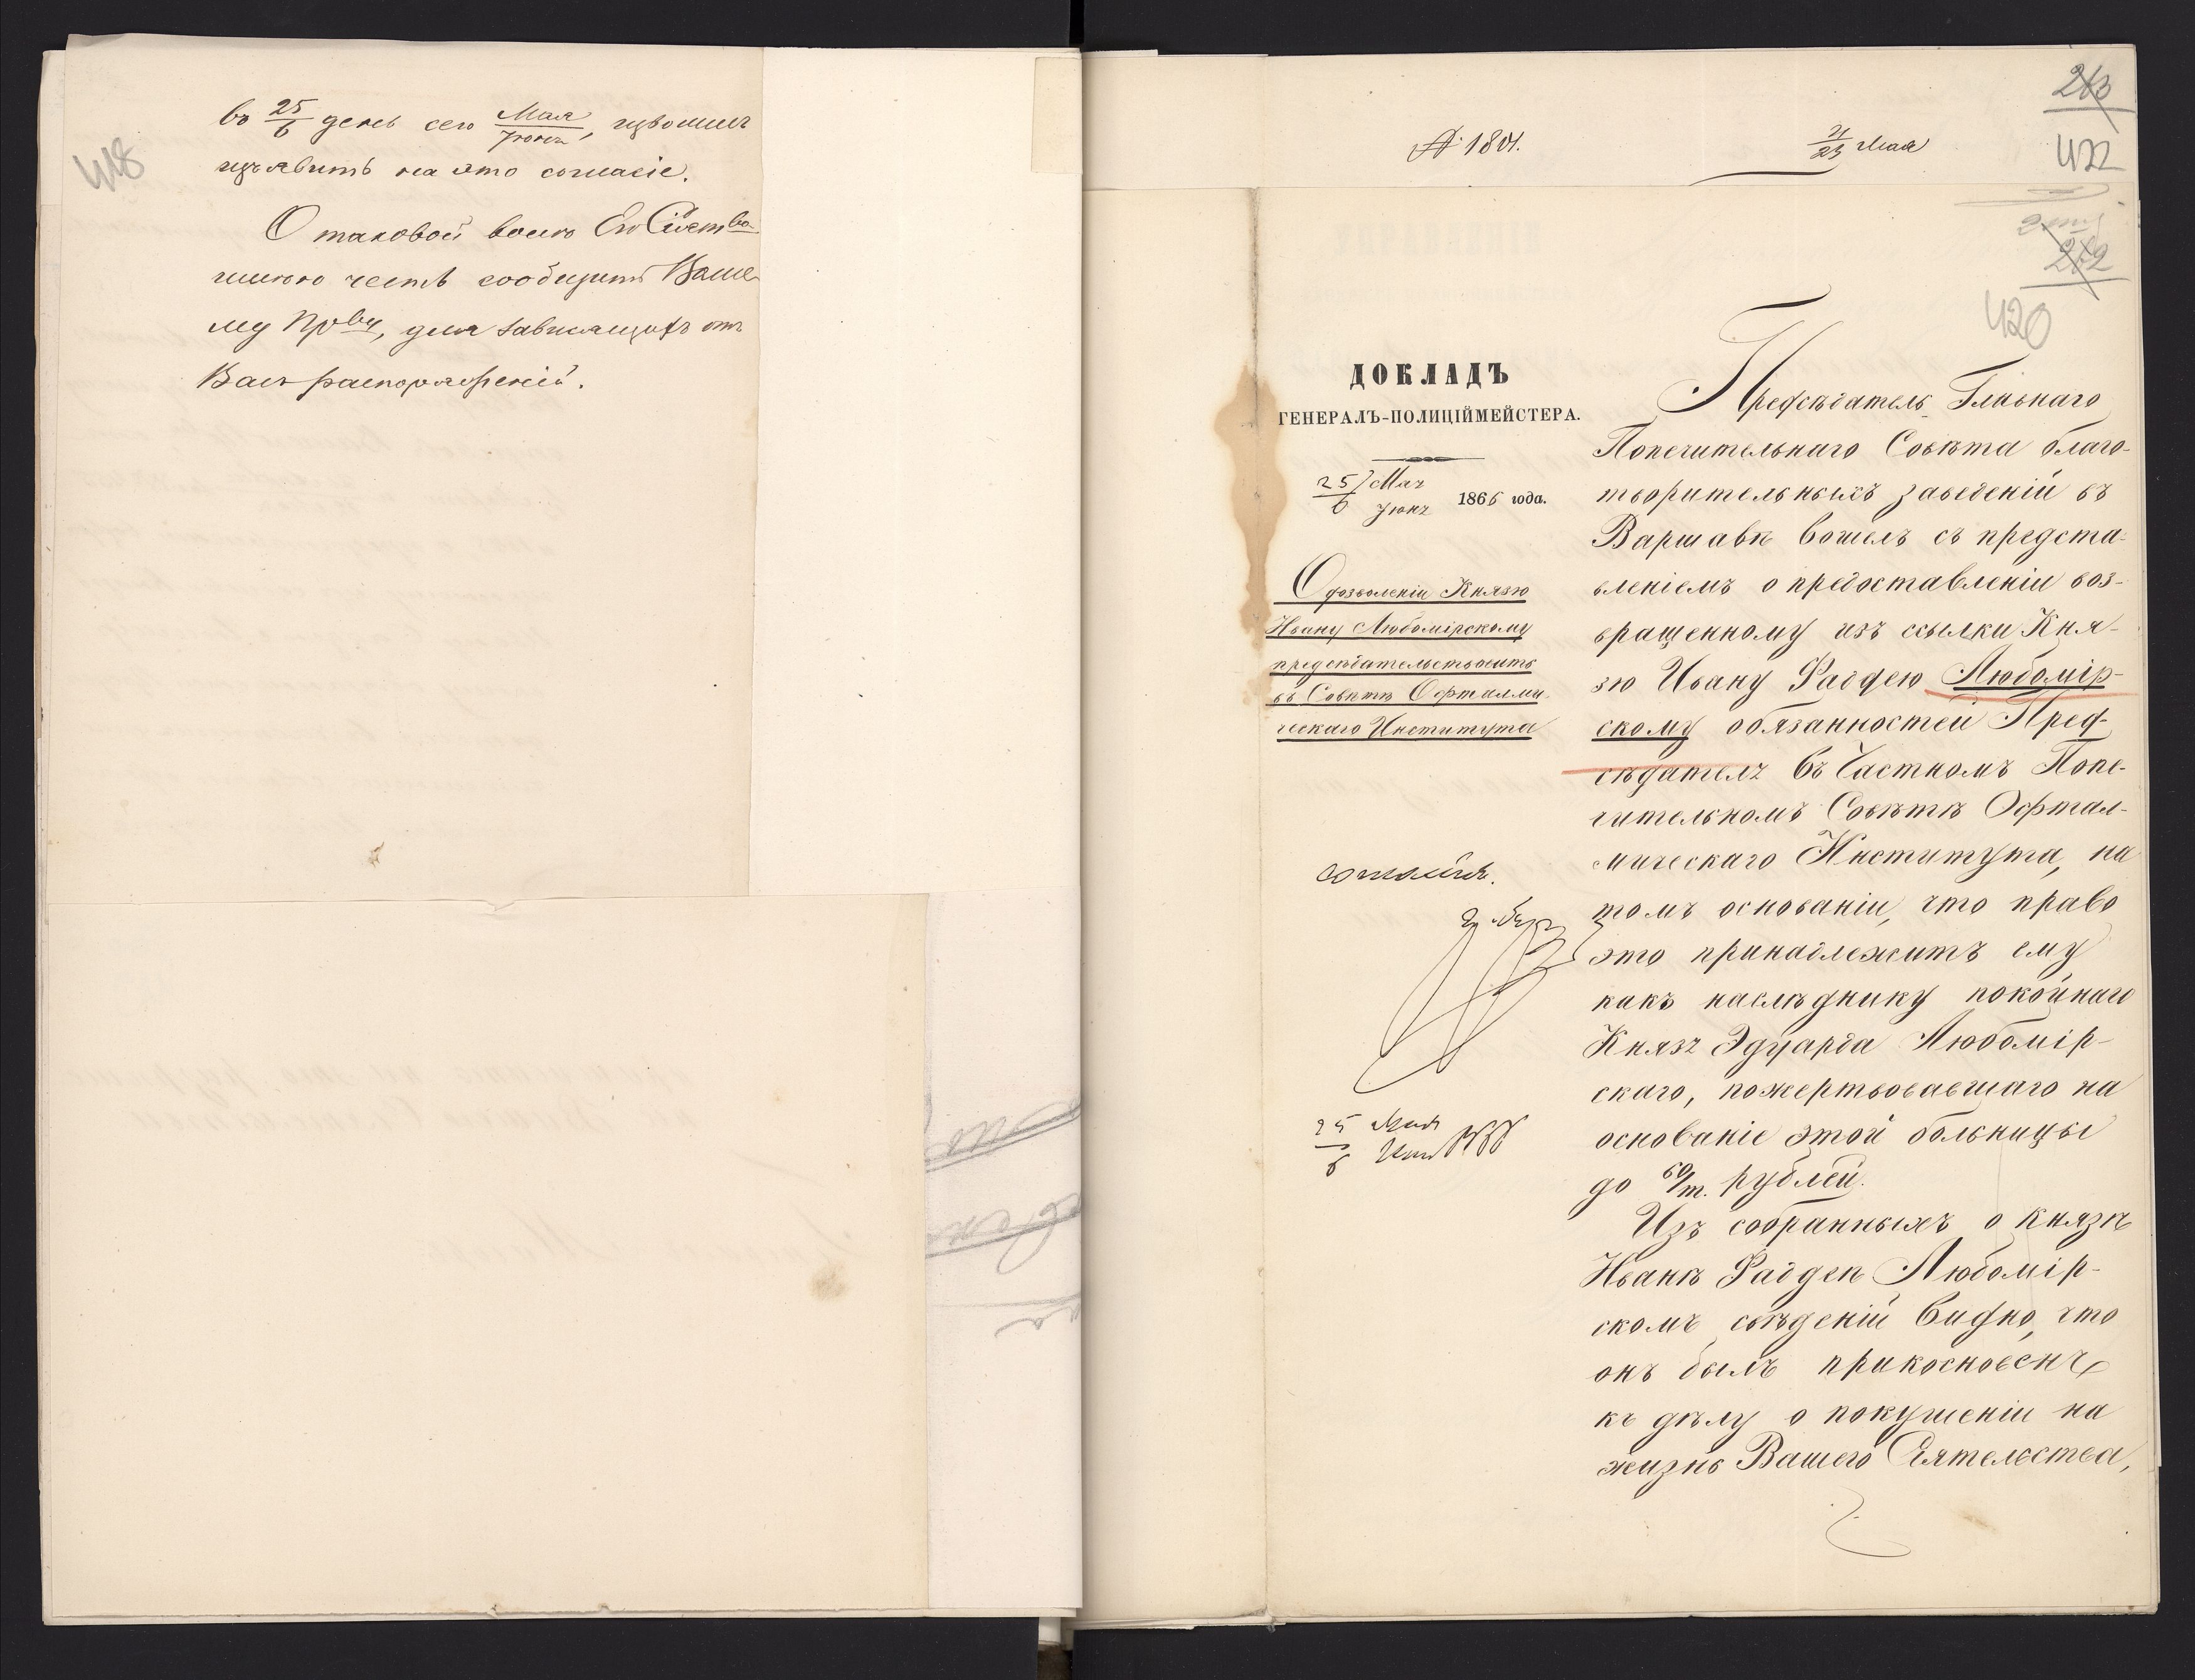 418
въ 25/6 день сего Мая/Іюня, изволилъ
изъявить на это согласіе.
О таковой волѣ Его Сіятва
имѣю честь сообщить Ваше
му Прву, для зависящихъ отъ
Васъ распоряженій.
№ 1801.
Мая
422
420
ДОКЛАДЪ
ГЕНЕРАЛЪ-ПОЛИЦІЙМЕЙСТЕРА.
25/6 Мая Іюня 1866 года.
О дозволеніи Князю
Ивану Любомірскому
предсѣдательствовать
въ Совѣтѣ Офталми
ческаго Института
согласенъ.
25/6 Мая
Предсѣдатель Главнаго
Попечительнаго Совѣта благо-
творительныхъ заведеній въ
Варшавѣ вошелъ съ предста-
вленіемъ о предоставленіи воз-
вращенному изъ ссылки Кня-
зю Ивану Фаддею Любомір-
скому обязанностей Пред-
сѣдателя въ Частномъ Попе-
чительномъ Совѣтѣ Офтал-
мическаго Института, на
томъ основаніи, что право
это принадлежитъ ему
какъ наслѣднику покойнаго
Князя Эдуарда Любомір-
скаго, пожертвовавшаго на
основаніе этой больницы
до 60/т. рублей.
Изъ собранныхъ о Князѣ
Иванѣ Фаддеѣ Любомір-
скомъ свѣденій видно, что
онъ былъ прикосновенъ
къ дѣлу о покушеніи на
жизнь Вашего Сіятельства,